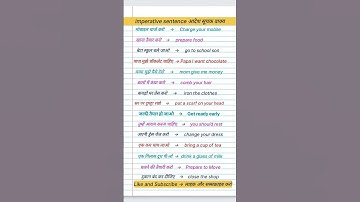 imperative sentence आदेश सूचक वाक्य
मोबाइल चार्ज करो → Charge your mobile
खाना तैयार करो → prepare food
बेटा स्कूल चले जाओ → go to school son
पापा मुझे चॉकलेट चाहिए → Papa I want chocolate
मम्मी मुझे पैसे दो → mom give me money
बालों में कंघा करो → comb your hair
कपड़ों पर प्रेस करो → iron the clothes
सर पर दुपट्टा रखो → put a scarf on your head
जल्दी तैयार हो जाओ → Get ready early
तुम्हें आराम करना चाहिए → you should rest
अपनी ड्रेस चेंज करो → change your dress
एक कप चाय लाओ → bring a cup of tea
एक गिलास दूध पी लो → drink a glass of milk
चलने की तैयारी करो → Prepare to Move
दुकान बंद कर दीजिए → close the shop
Like and Subscribe → लाइक और सब्सक्राइब करो